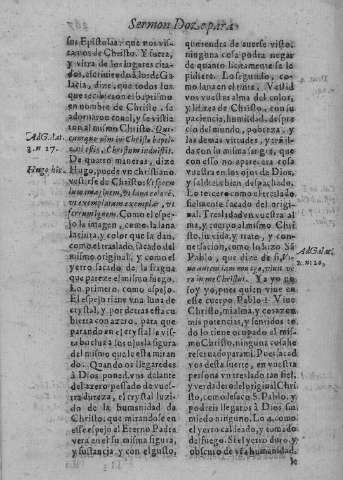 Sermon Doze para
sus Epistolas: que nos vis-
tamos de Christo. Y fuera,
y vltra de los lugares cita-
dos, escriuiendo à los de Ga-
lacia, dize, que todos los
que recibieron el baptismo
en nombre de Christo, se
adornaron con el, y se vistie
ron al mismo Christo. Qui-
cumque enim in Christo bapti-
zati estis, Christum induistis.
De quatro maneras, dize
Hugo, puede vn christiano
vestirse de Christo:
Como el espe-
jo la imagen, como la lana
la tintura, y color que la dan,
como el traslado, sacado del
mismo original, y como el
yerro sacado de la fragua
que parece al mismo fuego.
Lo primero, como espejo.
El espejo tiene vna luna de
crystal, y por detras esta cu-
bierta con azero, para que
parando en el crystal a vis-
ta buelua à los ojos la figura
del mismo que le esta miran
do. Quando os llegaredes
à Dios poned vos delante
del azero pesado de vues-
tra dureza, el crystal luzi-
do de la humanidad de
Christo, que mirandose en
esse espejo el Eterno Padre
vera en el su misma figura,
y sustancia, y con el gusto,
que endra de auerse visto,
ninguna cosa podra negar
de quanto licitamente se le
pidiere. Lo segundo, co-
mo lana en el tinte. Vestid
vos vuestra alma del color,
y librea de Christo, con su
paciencia, humildad, despre
cio del mundo, pobreza, y
las demas virtudes, y teñid-
la con su misma sangre, que
con esso no aparecera cosa
vuestra en los ojos de Dios,
y saldreis bien despachado.
Lo tercero como el traslado
fielmente sacado del origi-
nal. Trasladad en vuestra al
ma, y cuerpo al mismo Chri
sto, su vida, y trato, y con-
uersacion, como lo hizo S.
Pablo, que dize de si, Vi-
uo autem iam non ego, viuit ve-
ro in me Christus. Ya yo no
soy yo, pues quien viue en
esse cuerpo Pablo? Viuo
Christo, mi alma, y corazon
mis potencias, y sentidos to
do lo tiene ocupado el mis-
mo Christo, ninguna cosa he
reseruado para mi. Pues acad
vos desta suerte, en vuestra
persona vn traslado tan fiel,
y verdadero del original Chri
sto, como le saco S. Pablo, y
podreis llegaros à Dios sin
miedo ninguno. Lo 4. como
el yerro caldeado, y tomado
del fuego. Si el yerro duro, y
obscuro de vra humanidad,
se
Ad Galat.
3. n. 27.
Hugo hic.
Ad Galat.
2. n. 20.